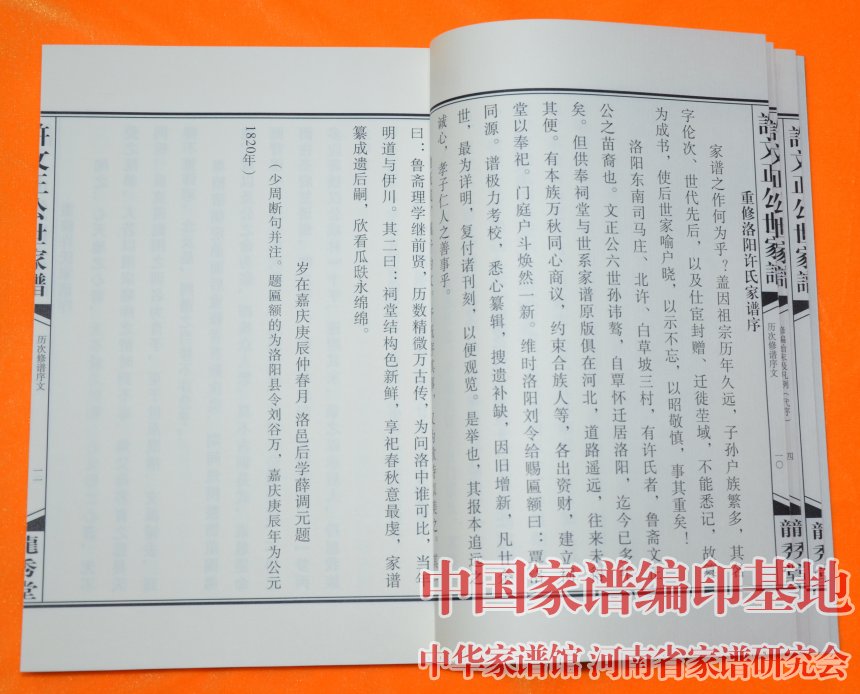 許文正公世家譜
許文正公世家譜
重修洛阳许氏家谱序
家谱之作何为乎？盖因祖宗历年久远，子孙户族繁多，其
字伦次、世代先后，以及仕宦封赠、迁徙茔域，不能悉记，故
为成书，使后世家喻户晓，以示不忘，以昭敬慎，事其重矣！
洛阳东南司马庄、北许、白草坡三村，有许氏者，鲁斋文
公之苗裔也。文正公六世孙讳骜，自覃怀迁居洛阳，迄今已多
矣。但供奉祠堂与世系家谱原版俱在河北，道路遥远，往来未
其便。有本族万秋同心商议，约束合族人等，各出资财，建立
堂以奉祀。门庭户斗焕然一新。维时洛阳刘令给赐匾额曰：贾
同源。谱极力考校，悉心纂辑，搜遗补缺，因旧增新，凡廿
世，最为详明，复付诸刊刻，以便观览。是举也，其报本追远之
诚心，孝子仁人之善事乎。
历次修谱序文
一〇
四
曰：鲁斋理学继前贤，历数精微万古传，为问洛中谁可比，当年
明道与伊川。其二曰：祠堂结构色新鲜，享祀春秋意最虔，家谱
纂成遗后嗣，欣看瓜瓞永绵绵。
岁在嘉庆庚辰仲春月 洛邑后学薛调元题
（少周断句并注。题匾额的为洛阳县令刘谷万，嘉庆庚辰年为公元
1820年）
許文正公世家譜
历次修谱序文
一一
龍秀堂
中国家谱编印基地
中华家谱馆 河南省家谱研究会